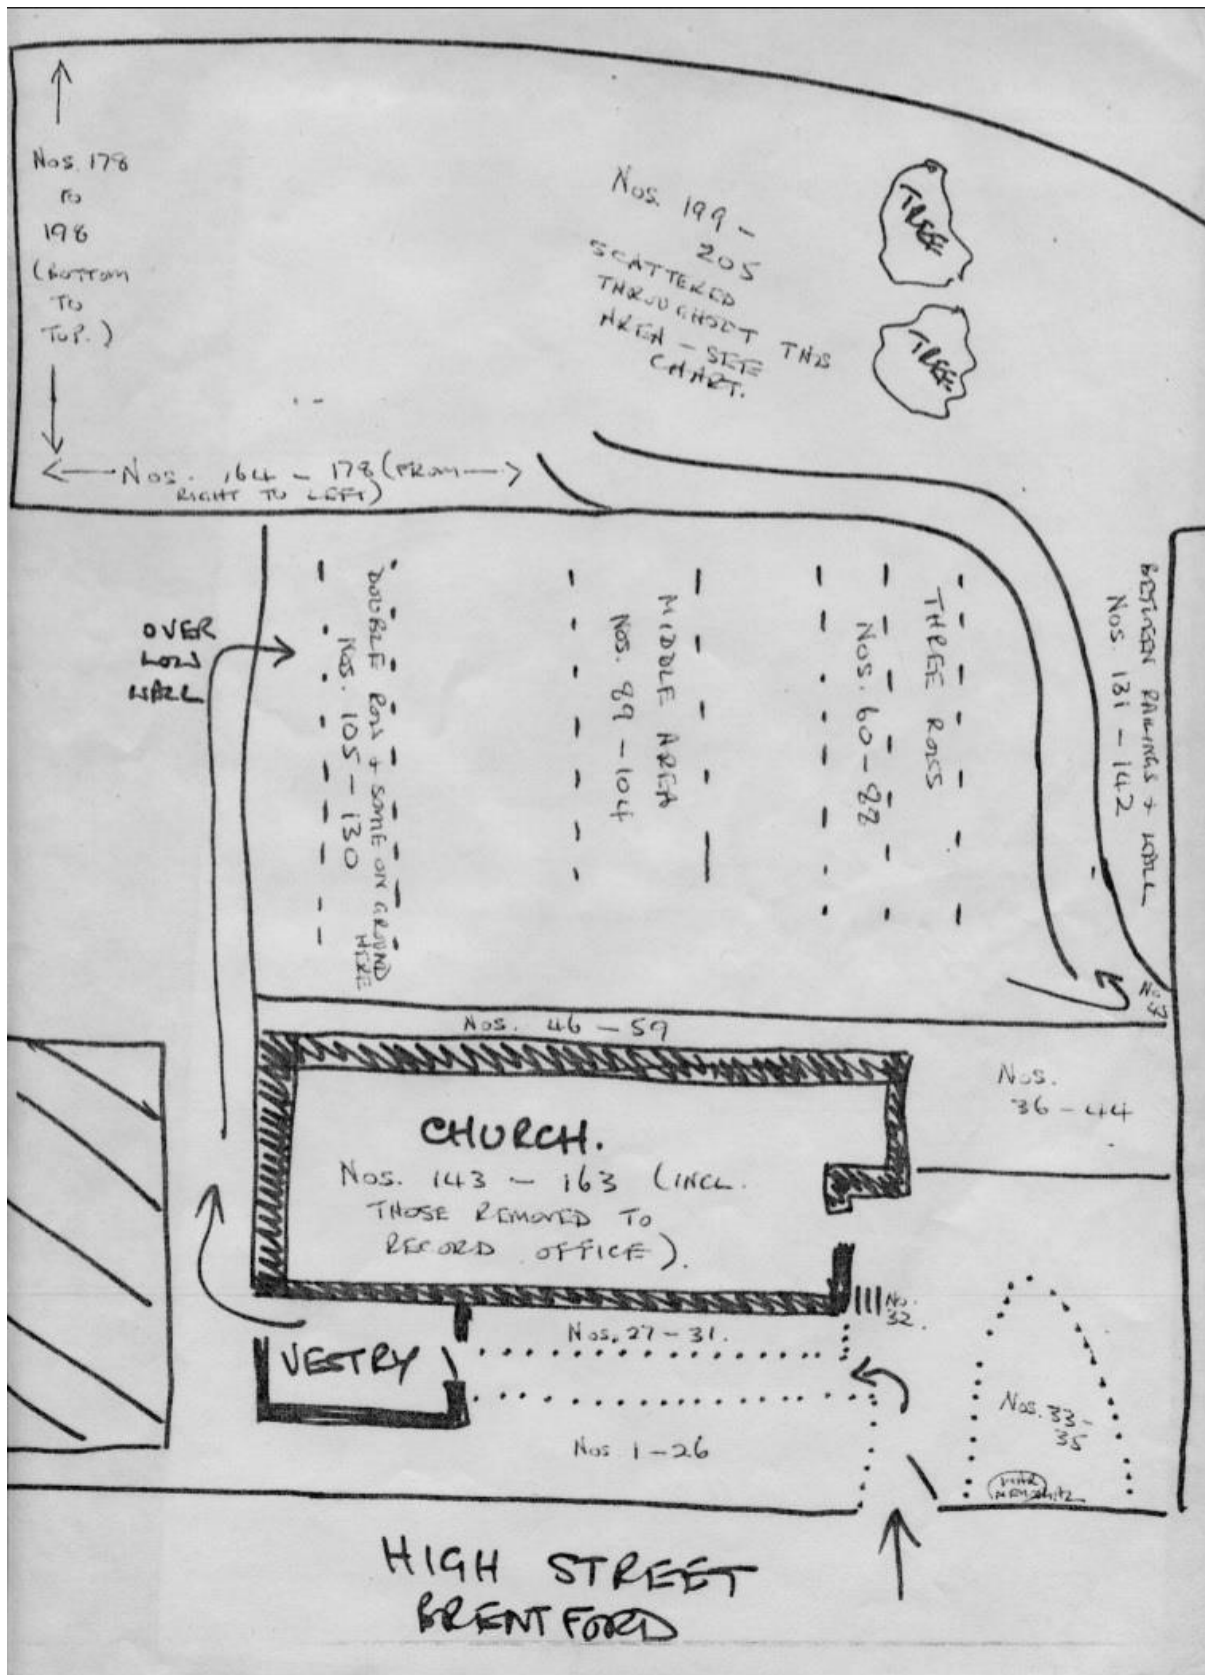 Nos. 178
to
198
(BOTTOM
TO
TOP.)
Nos. 199 -
205
SCATTERED
THROUGHOUT THIS
AREA - SEE
CHART.
TREE
TREE
Nos. 164 - 178 (FROM
RIGHT TO LEFT)
OVER
LOW
WALL
DOUBLE ROW + SOME ON GROUND
HERE
Nos. 105 - 130
MIDDLE AREA
Nos. 89 - 104
THREE ROWS
Nos. 60 - 88
BETWEEN RAILINGS + WALL
Nos. 131 - 142
Nos. 46 - 59
Nos.
36 - 44
CHURCH.
Nos. 143 - 163 (INCL.
THOSE REMOVED TO
RECORD OFFICE).
No.
32.
Nos. 27 - 31.
VESTRY
Nos. 33 -
35
Nos 1 - 26
WAR
MEMORIAL
HIGH STREET
BRENTFORD